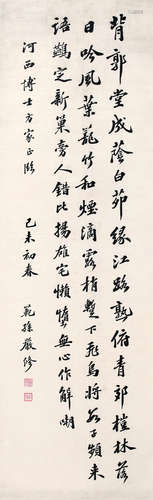 背郭堂成蔭白茆緣江路熟俯青郊榿林
日吟風葉籠竹和煙滴露梢暫下飛烏將數子頻來
語鷰定新巢旁人錯比揚雄宅懶惰無心作解嘲
河西博士方家正臨
己未初春
範孫嚴修